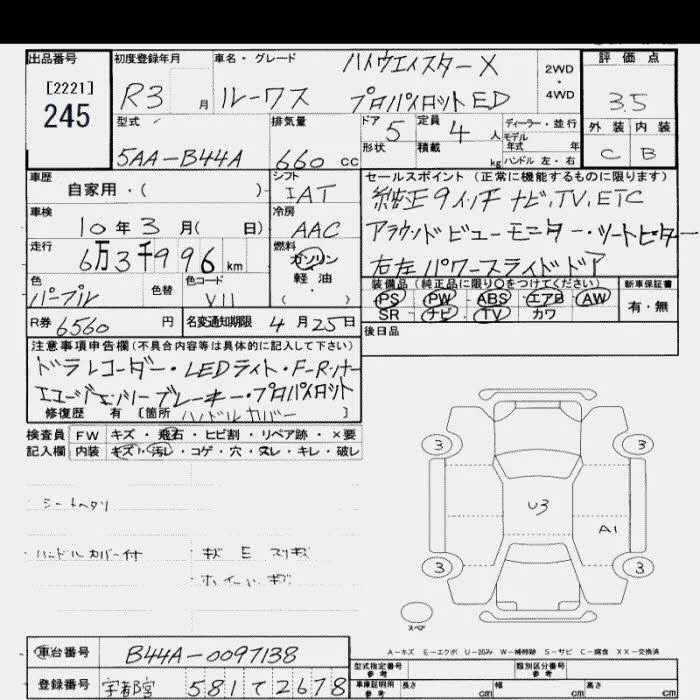 出品番号 初度登録年月 車名・グレード ハイウェイスター X 2WD・4WD 評価点
[2221] 245 R3 月 ルークス プロパイロットED 3.5
型式 排気量 ドア 定員 ディーラー・並行 外装 内装
5AA-B44A 660 cc 5 4 人 モデル年式 年 C B
形状 積載 kg ハンドル 左・右
車歴 シフト セールスポイント (正常に機能するものに限ります)
自家用・( ) IAT 純正9インチ ナビ,TV,ETC
車検 冷房
10年3月( 日) AAC アラウンドビューモニター・シートヒーター
走行 燃料
6万3千996km ガソリン 右左パワースライドドア
色 色替 色コード 軽油 装備品 (純正品に限り○をつけてください) 新車保証書
パープル ( ) PS PW ABS エアB AW 有・無
SR ナビ TV カワ
R券 6560 円 名変通知期限 4月25日 後日品
注意事項申告欄 (不具合内容等は具体的に記入して下さい)
ドラレコーダー・LEDライト・F-Rソナー
エマージェンシーブレーキ・プロパイロット
修復歴 有 [箇所 ハンドルカバー ]
検査員 FW キズ・飛石・ヒビ割・リペア跡・×要
記入欄 内装 キズ・汚レ・コゲ・穴・ヌレ・キレ・破レ
シートヘタリ
ハンドルカバー付 キズ E スリキズ
ホイールキズ
3 3
U3
A1
3 3
スペア
A-キズ E-エクボ U-凹み W-補修跡 S-サビ C-腐食 XX-交換済
車台番号 B44A-0097138 型式指定番号 参考 類別区分番号 参考
登録番号 宇都宮 581 て 2678 車庫証明用 参考 長さ cm 幅 cm 高さ cm